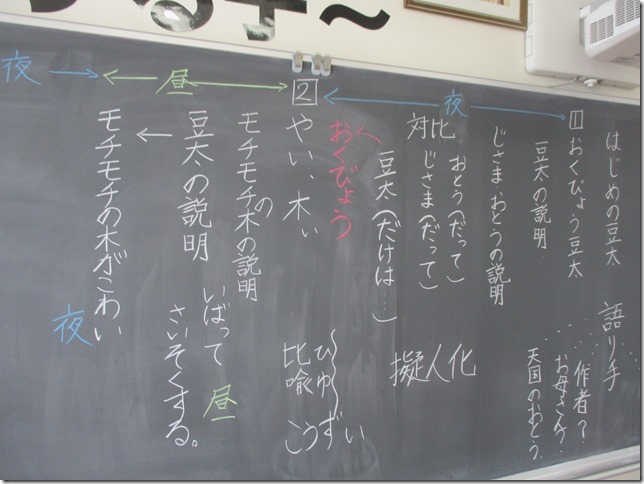 はじめの豆太　語り手
……作者？
お母さん？
天国のおとう
1 おくびょう豆太
豆太の説明
夜
じさま・おとうの説明
おとう（だって）
対比 じさま（だって）
擬人化
豆太（だけは……）
おくびょう
2 やい、木ぃ
ひゆ
比喩
こうずい
モチモチの木の説明
昼
豆太の説明
いばって 昼
さいそくする。
モチモチの木がこわい
夜
夜